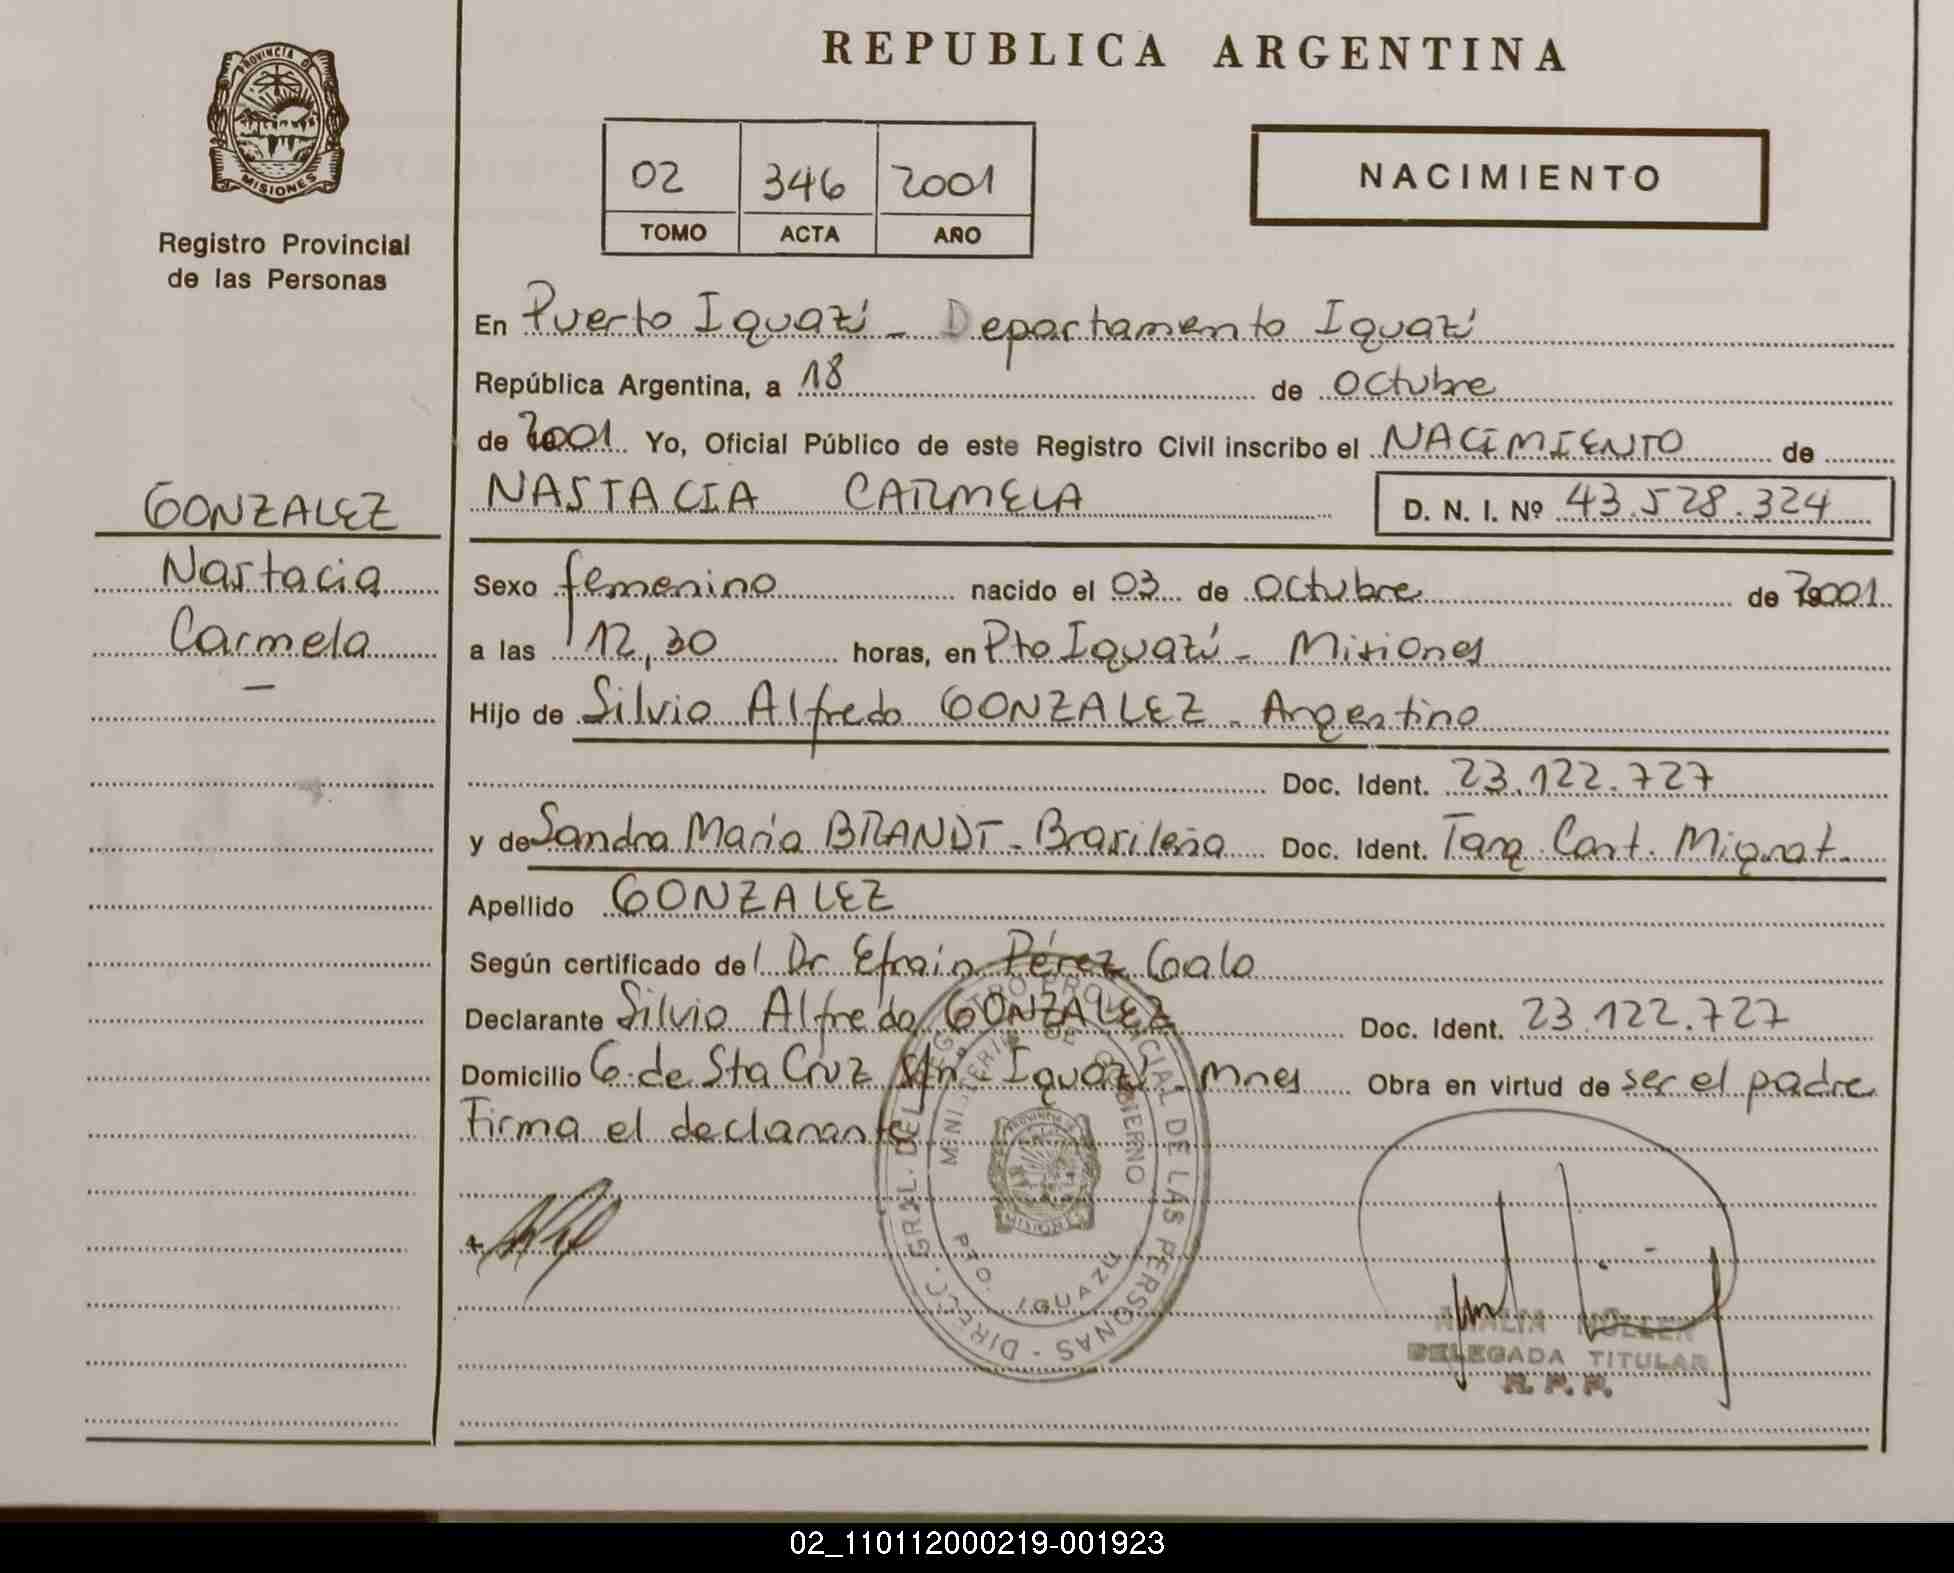 REPUBLICA ARGENTINA
PROVINCIA D
MISIONES
Registro Provincial
de las Personas
02 346 2001
TOMO ACTA AÑO
NACIMIENTO
En Puerto Iguazú - Departamento Iguazú
República Argentina, a 18 de octubre
de 2001 Yo, Oficial Público de este Registro Civil inscribo el NACIMIENTO de
NASTACIA CARMELA D. N. I. Nº 43.528.324
GONZALEZ
Nastacia
Carmela
-
Sexo femenino nacido el 03 de octubre de 2001
a las 12,30 horas, en Pto Iguazú - Misiones
Hijo de Silvio Alfredo GONZALEZ - Argentino
Doc. Ident. 23.122.727
y de Sandra Maria BRANDT - Brasileña Doc. Ident. Tarj. Cart. Migrat.
Apellido GONZALEZ
Según certificado del Dr Efrain Pérez Galo
Declarante Silvio Alfredo GONZALEZ Doc. Ident. 23.122.727
Domicilio G. de Sta Cruz s/n - Iguazú - Mnes Obra en virtud de ser el padre
Firma el declarante
DIRECC. GRAL. DEL REGISTRO PROVINCIAL DE LAS PERSONAS -
MINISTERIO DE GOBIERNO
PROVINCIA
MISIONES
PTO. IGUAZU
DELEGADA TITULAR
R. P. P.
02_110112000219-001923